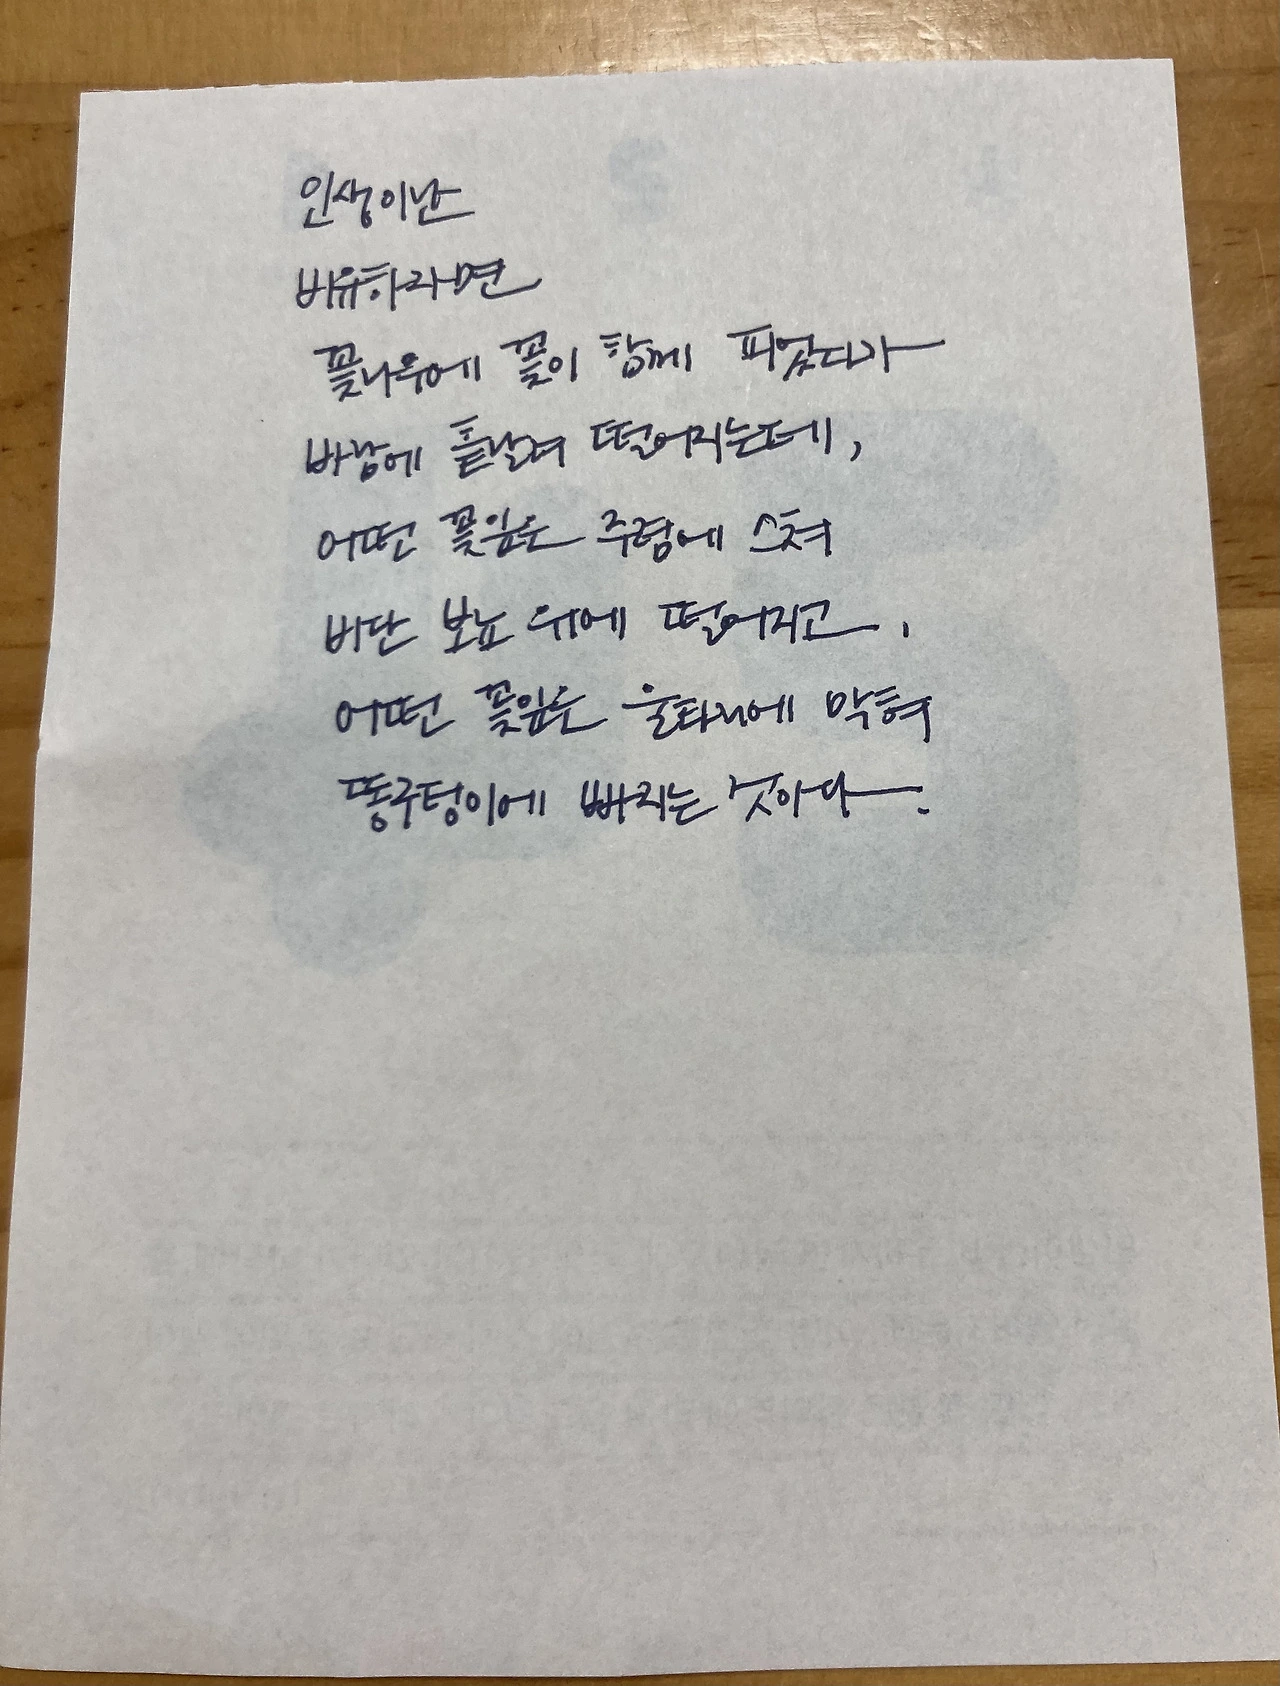 인생이란
비유하자면
꽃나무에 꽃이 함께 피었다가
바람에 흩날려 떨어지는데,
어떤 꽃잎은 주렴에 스쳐
비단 보료 위에 떨어지고,
어떤 꽃잎은 울타리에 막혀
똥구덩이에 빠지는 것이다.